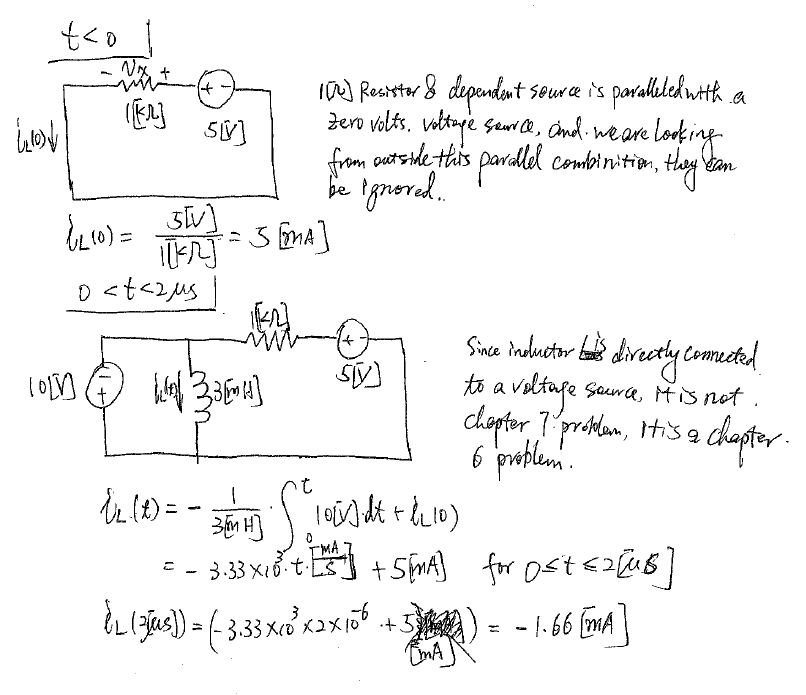 t<0
- Vx +
1[kΩ]
+ -
5[V]
iL(0)↓
1[Ω] Resistor & dependent source is paralleled with a
zero volts. voltage source, and. we are looking
from outside this parallel combinition, they can
be ignored..
iL(0) = 5[V] / 1[kΩ] = 5 [mA]
0 < t < 2μs
1[kΩ]
+ -
5[V]
10[V]
- +
iL(t)↓
3[mH]
Since inductor is directly connected
to a voltage source, it is not.
chapter 7 problem, it is a chapter.
6 problem.
iL(t) = - 1/3[mH] · ∫₀ᵗ 10[V]·dt + iL(0)
= - 3.33×10³·t·[mA/s] + 5[mA] for 0≤t≤2[μs]
iL(2[μs]) = (-3.33×10³×2×10⁻⁶ + 5 [mA]) = -1.66 [mA]